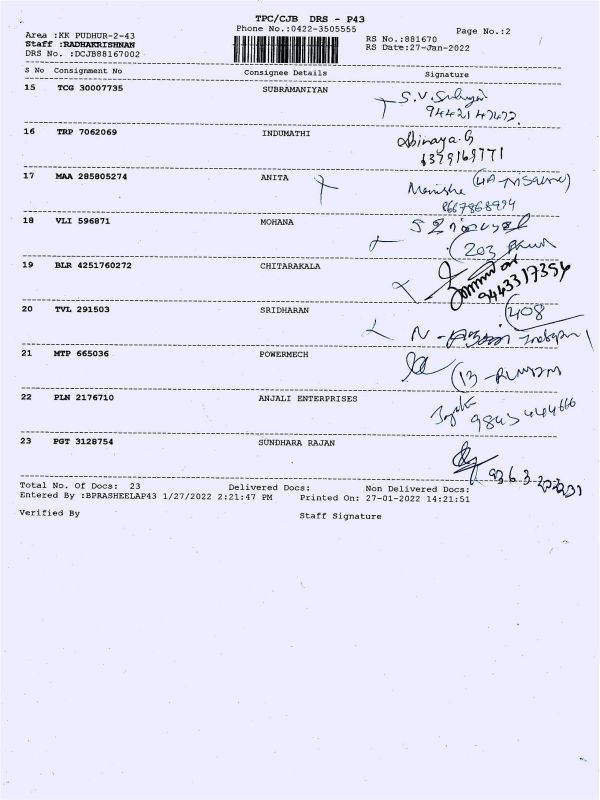 TPC/CJB DRS - P43
Phone No.:0422-3505555
Page No.:2
Area :KK PUDHUR-2-43
Staff :RADHAKRISHNAN
DRS No. :DCJB88167002
RS No.:881670
RS Date:27-Jan-2022
S No Consignment No Consignee Details Signature
15 TCG 30007735 SUBRAMANIYAN
S.V.
9442147472.
16 TRP 7062069 INDUMATHI
Abinaya.G
6379169771
17 MAA 285805274 ANITA
Manisha
8667868924
18 VLI 596871 MOHANA
203
19 BLR 4251760272 CHITARAKALA
9443317354
20 TVL 291503 SRIDHARAN
408
N -
21 MTP 665036 POWERMECH
13 -
22 PLN 2176710 ANJALI ENTERPRISES
9843444666
23 PGT 3128754 SUNDHARA RAJAN
Total No. Of Docs: 23 Delivered Docs: Non Delivered Docs:
Entered By :BPRASHEELAP43 1/27/2022 2:21:47 PM Printed On: 27-01-2022 14:21:51
Verified By Staff Signature